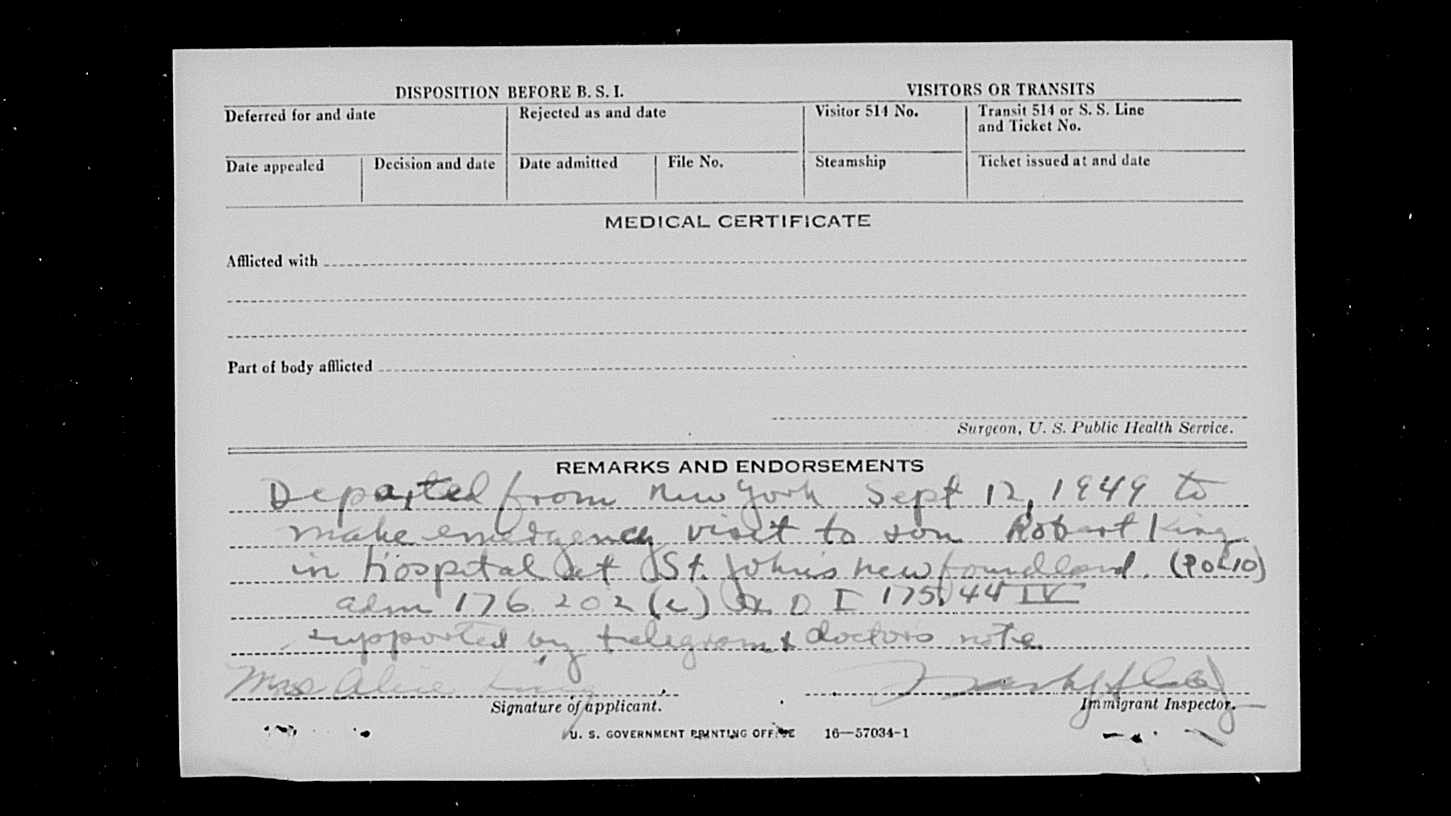 DISPOSITION BEFORE B. S. I.
VISITORS OR TRANSITS
Deferred for and date
Rejected as and date
Visitor 514 No.
Transit 514 or S. S. Line
and Ticket No.
Date appealed
Decision and date
Date admitted
File No.
Steamship
Ticket issued at and date
MEDICAL CERTIFICATE
Afflicted with
Part of body afflicted
Surgeon, U. S. Public Health Service.
REMARKS AND ENDORSEMENTS
Departed from New York Sept 12, 1949 to
make emergency visit to son Robert King
in Hospital at St. John's Newfoundland. (Polio)
adm 176.202 (c) 175.44 IV
supported by telegram & doctors note
Mrs Alice King
Signature of applicant.
Immigrant Inspector.
U. S. GOVERNMENT PRINTING OFFICE 16—57034-1